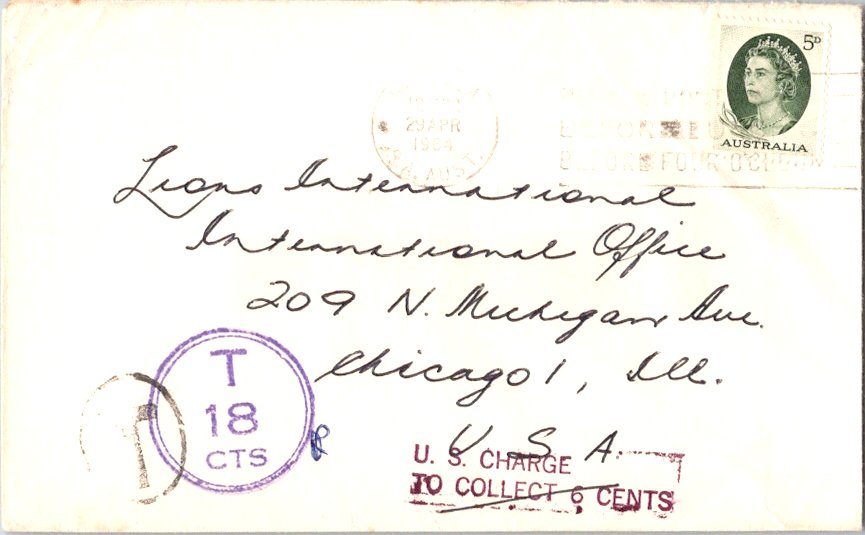 5D
AUSTRALIA
29 APR
1964
AUST.
BEFORE FOUR O'CLOCK
Lions International
International Office
209 N. Michigan Ave.
Chicago 1, Ill.
U. S. A.
T
18
CTS
T
U. S. CHARGE
TO COLLECT 6 CENTS